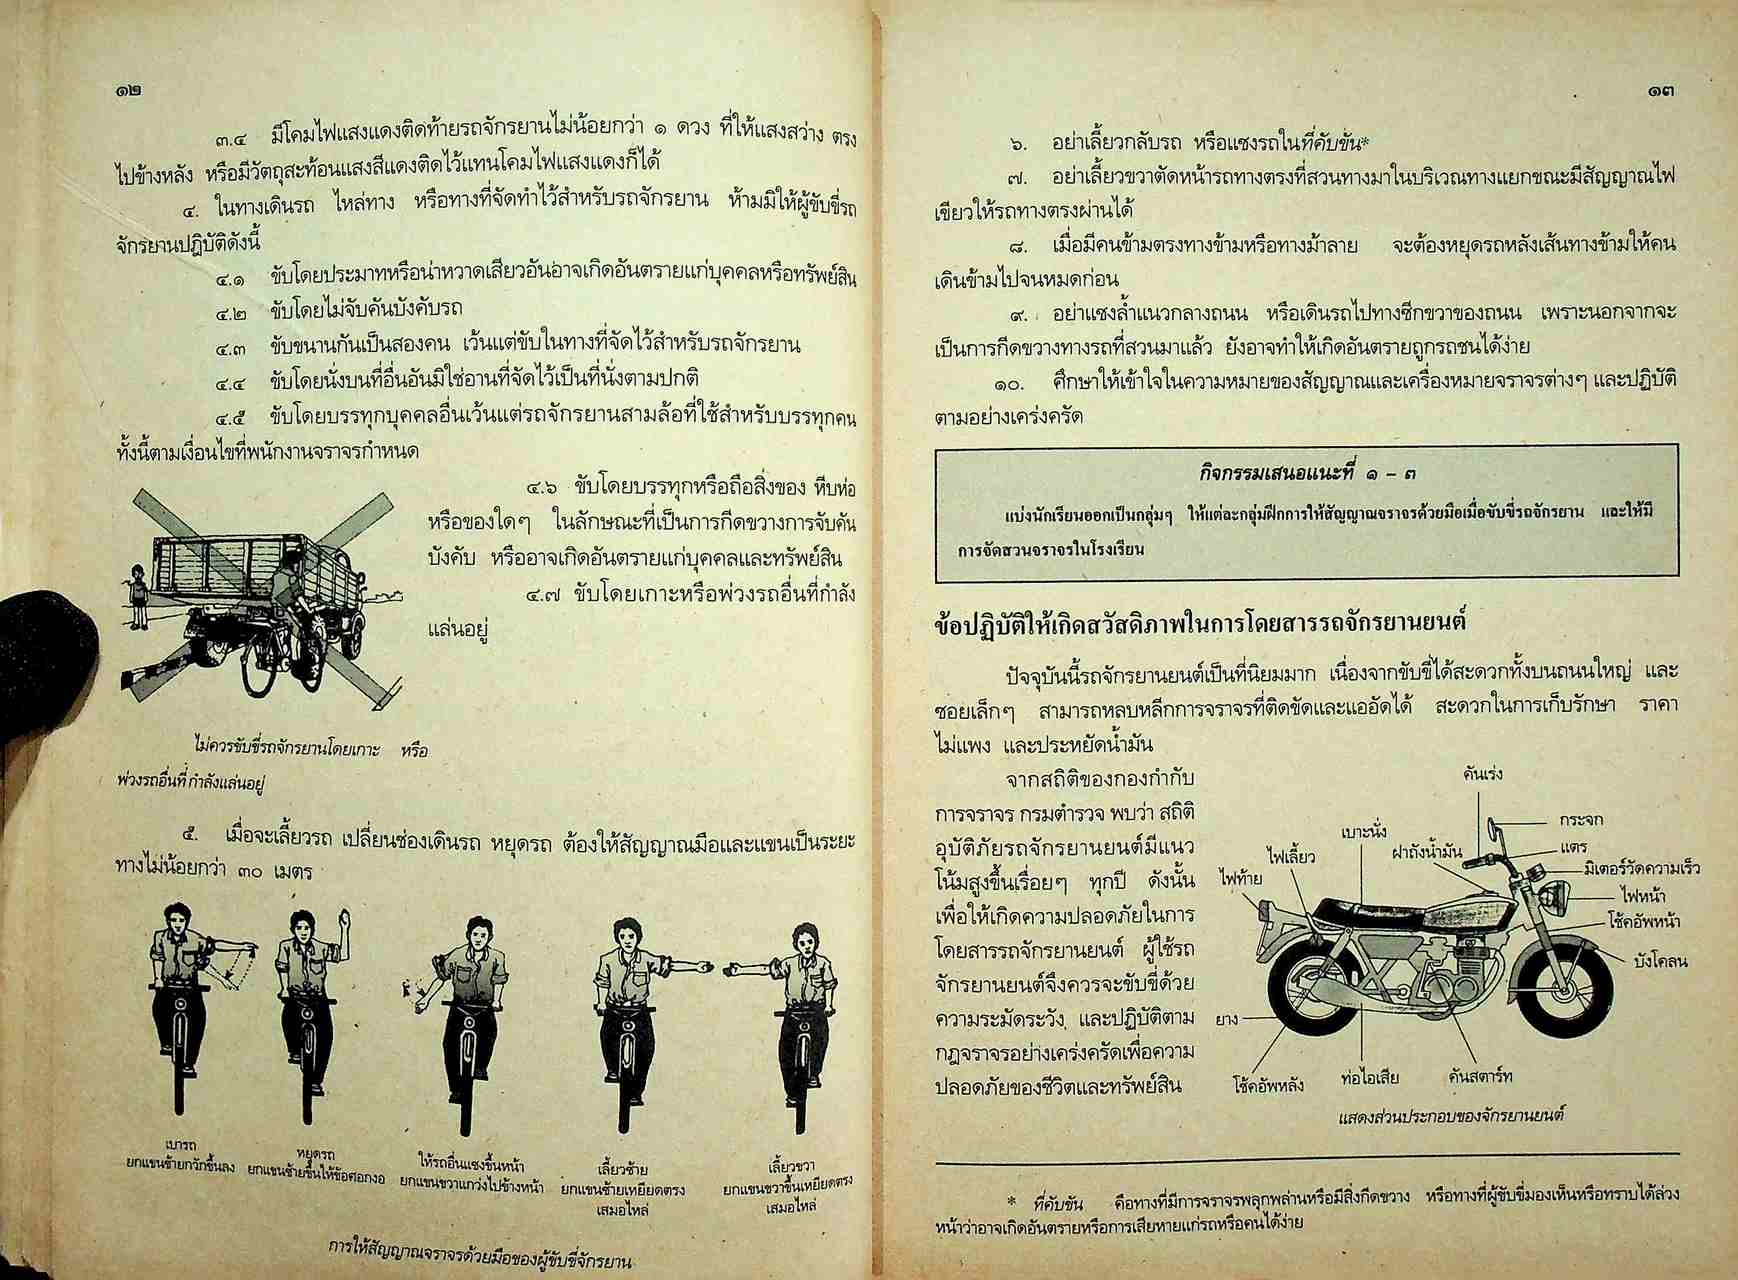 ๑๒
๓.๔ มีโคมไฟแสงแดงติดท้ายรถจักรยานไม่น้อยกว่า ๑ ดวง ที่ให้แสงสว่าง ตรง
ไปข้างหลัง หรือมีวัตถุสะท้อนแสงสีแดงติดไว้แทนโคมไฟแสงแดงก็ได้
๔. ในทางเดินรถ ไหล่ทาง หรือทางที่จัดทำไว้สำหรับรถจักรยาน ห้ามมิให้ผู้ขับขี่รถ
จักรยานปฏิบัติดังนี้
๔.๑ ขับโดยประมาทหรือน่าหวาดเสียวอันอาจเกิดอันตรายแก่บุคคลหรือทรัพย์สิน
๔.๒ ขับโดยไม่จับคันบังคับรถ
๔.๓ ขับขนานกันเป็นสองคน เว้นแต่ขับในทางที่จัดไว้สำหรับรถจักรยาน
๔.๔ ขับโดยนั่งบนที่อื่นอันมิใช่อานที่จัดไว้เป็นที่นั่งตามปกติ
๔.๕ ขับโดยบรรทุกบุคคลอื่นเว้นแต่รถจักรยานสามล้อที่ใช้สำหรับบรรทุกคน
ทั้งนี้ตามเงื่อนไขที่พนักงานจราจรกำหนด
๔.๖ ขับโดยบรรทุกหรือถือสิ่งของ หีบห่อ
หรือของใดๆ ในลักษณะที่เป็นการกีดขวางการจับคัน
บังคับ หรืออาจเกิดอันตรายแก่บุคคลและทรัพย์สิน
๔.๗ ขับโดยเกาะหรือพ่วงรถอื่นที่กำลัง
แล่นอยู่
ไม่ควรขับขี่รถจักรยานโดยเกาะ หรือ
พ่วงรถอื่นที่กำลังแล่นอยู่
๕. เมื่อจะเลี้ยวรถ เปลี่ยนช่องเดินรถ หยุดรถ ต้องให้สัญญาณมือและแขนเป็นระยะ
ทางไม่น้อยกว่า ๓๐ เมตร
เบารถ
ยกแขนซ้ายกวักขึ้นลง
หยุดรถ
ยกแขนซ้ายขึ้นให้ข้อศอกงอ
ให้รถอื่นแซงขึ้นหน้า
ยกแขนขวาแกว่งไปข้างหน้า
เลี้ยวซ้าย
ยกแขนซ้ายเหยียดตรง
เสมอไหล่
เลี้ยวขวา
ยกแขนขวาขึ้นเหยียดตรง
เสมอไหล่
การให้สัญญาณจราจรด้วยมือของผู้ขับขี่จักรยาน
๑๓
๖. อย่าเลี้ยวกลับรถ หรือแซงรถในที่คับขัน*
๗. อย่าเลี้ยวขวาตัดหน้ารถทางตรงที่สวนทางมาในบริเวณทางแยกขณะมีสัญญาณไฟ
เขียวให้รถทางตรงผ่านได้
๘. เมื่อมีคนข้ามตรงทางข้ามหรือทางม้าลาย จะต้องหยุดรถหลังเส้นทางข้ามให้คน
เดินข้ามไปจนหมดก่อน
๙. อย่าแซงล้ำแนวกลางถนน หรือเดินรถไปทางซีกขวาของถนน เพราะนอกจากจะ
เป็นการกีดขวางทางรถที่สวนมาแล้ว ยังอาจทำให้เกิดอันตรายถูกรถชนได้ง่าย
๑๐. ศึกษาให้เข้าใจในความหมายของสัญญาณและเครื่องหมายจราจรต่างๆ และปฏิบัติ
ตามอย่างเคร่งครัด
กิจกรรมเสนอแนะที่ ๑ - ๓
แบ่งนักเรียนออกเป็นกลุ่มๆ ให้แต่ละกลุ่มฝึกการให้สัญญาณจราจรด้วยมือเมื่อขับขี่รถจักรยาน และให้มี
การจัดสวนจราจรในโรงเรียน
ข้อปฏิบัติให้เกิดสวัสดิภาพในการโดยสารรถจักรยานยนต์
ปัจจุบันนี้รถจักรยานยนต์เป็นที่นิยมมาก เนื่องจากขับขี่ได้สะดวกทั้งบนถนนใหญ่ และ
ซอยเล็กๆ สามารถหลบหลีกการจราจรที่ติดขัดและแออัดได้ สะดวกในการเก็บรักษา ราคา
ไม่แพง และประหยัดน้ำมัน
จากสถิติของกองกำกับ
การจราจร กรมตำรวจ พบว่า สถิติ
อุบัติภัยรถจักรยานยนต์มีแนว
โน้มสูงขึ้นเรื่อยๆ ทุกปี ดังนั้น
เพื่อให้เกิดความปลอดภัยในการ
โดยสารรถจักรยานยนต์ ผู้ใช้รถ
จักรยานยนต์จึงควรจะขับขี่ด้วย
ความระมัดระวัง และปฏิบัติตาม
กฎจราจรอย่างเคร่งครัดเพื่อความ
ปลอดภัยของชีวิตและทรัพย์สิน
คันเร่ง
กระจก
เบาะนั่ง
แตร
ฝาถังน้ำมัน
ไฟเลี้ยว
มิเตอร์วัดความเร็ว
ไฟท้าย
ไฟหน้า
โช้คอัพหน้า
บังโคลน
ยาง
โช้คอัพหลัง
ท่อไอเสีย
คันสตาร์ท
แสดงส่วนประกอบของจักรยานยนต์
* ที่คับขัน คือทางที่มีการจราจรพลุกพล่านหรือมีสิ่งกีดขวาง หรือทางที่ผู้ขับขี่มองเห็นหรือทราบได้ล่วง
หน้าว่าอาจเกิดอันตรายหรือการเสียหายแก่รถหรือคนได้ง่าย